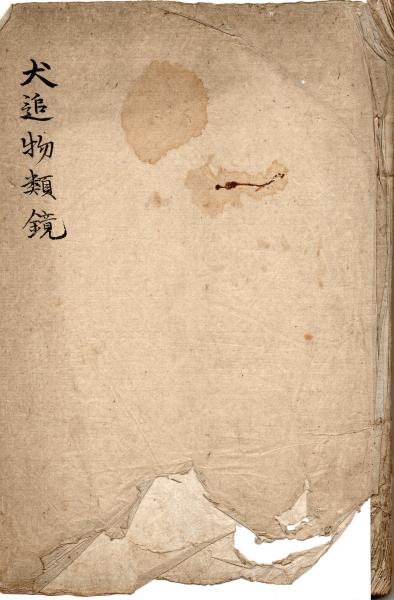 犬追物類鏡